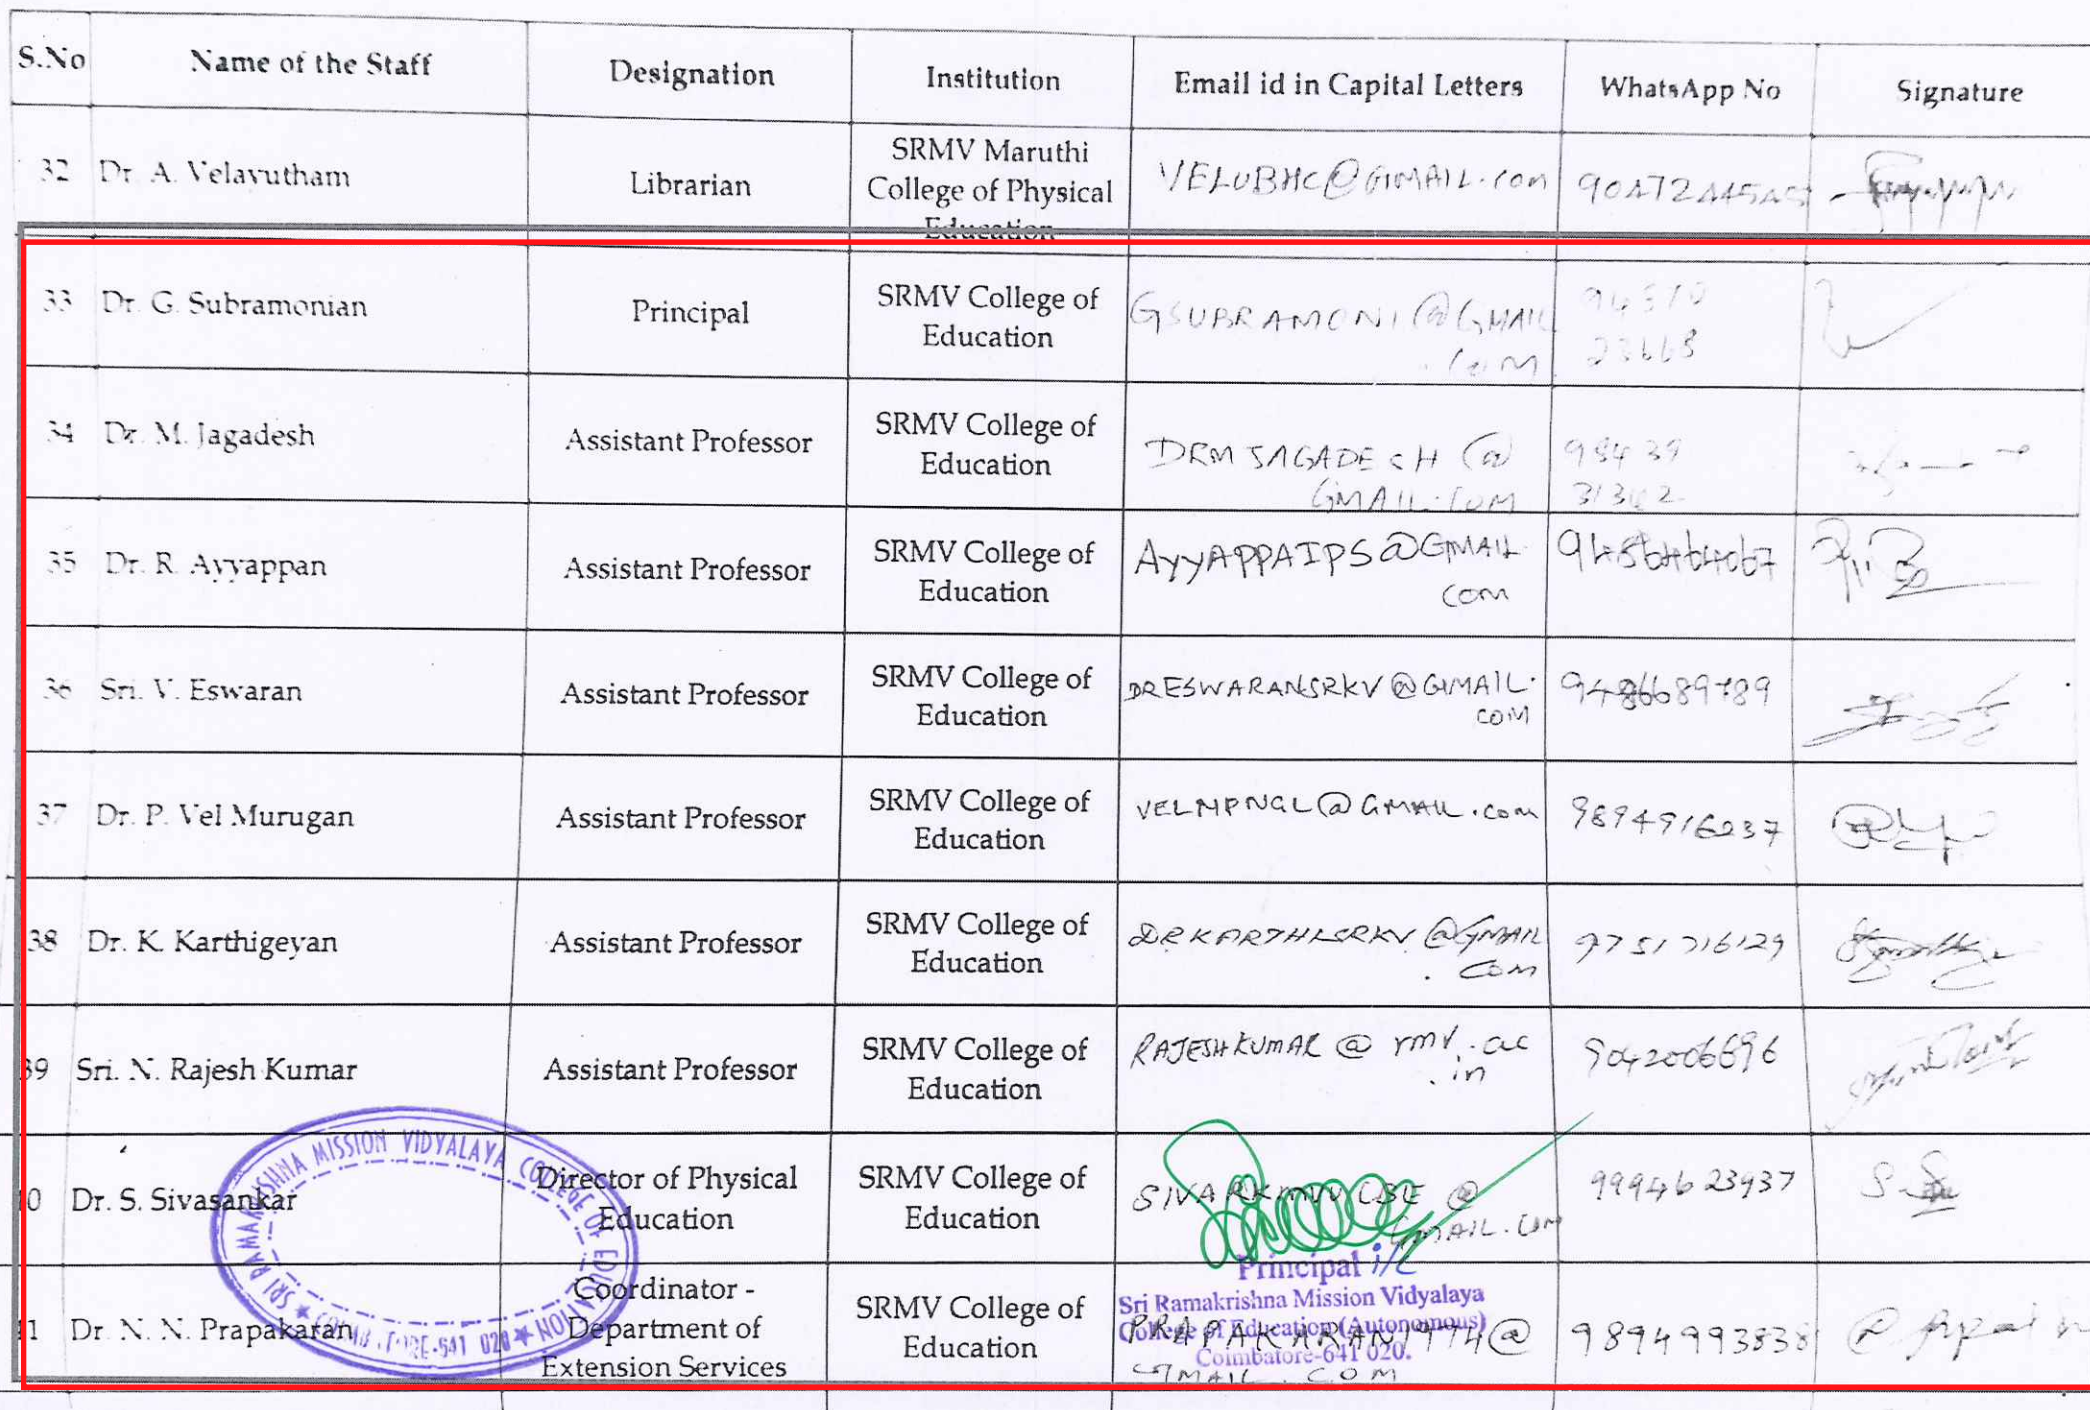 S.No Name of the Staff Designation Institution Email id in Capital Letters WhatsApp No Signature
32 Dr. A. Velayutham Librarian SRMV Maruthi College of Physical Education VELUBHC@GMAIL.com
33 Dr. G. Subramonian Principal SRMV College of Education GSUBRAMONI@GMAIL.com
34 Dr. M. Jagadesh Assistant Professor SRMV College of Education DRMJAGADESH@GMAIL.COM
35 Dr. R. Ayyappan Assistant Professor SRMV College of Education AYYAPPAIPS@GMAIL.com
36 Sri. V. Eswaran Assistant Professor SRMV College of Education DRESWARANSRKV@GMAIL.COM 9486689789
37 Dr. P. Vel Murugan Assistant Professor SRMV College of Education VELMPNGL@GMAIL.com 9894916237
38 Dr. K. Karthigeyan Assistant Professor SRMV College of Education 9751716129
39 Sri. N. Rajesh Kumar Assistant Professor SRMV College of Education RAJESHKUMAR@rmv.ac.in 9042006696
40 Dr. S. Sivasankar Director of Physical Education SRMV College of Education GMAIL.COM 9994623937
41 Dr. N. N. Prapakaran Coordinator - Department of Extension Services SRMV College of Education PRAPAKARAN1974@GMAIL.COM 9894993838
SRI RAMAKRISHNA MISSION VIDYALAYA COLLEGE OF EDUCATION
Principal i/c
Sri Ramakrishna Mission Vidyalaya
College of Education (Autonomous)
Coimbatore-641 020.